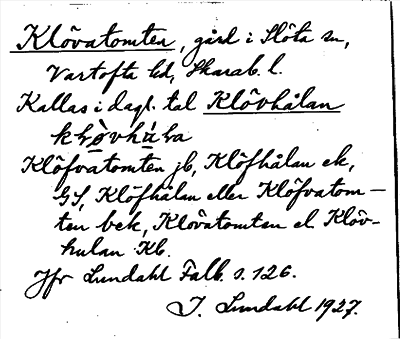 Klövatomten, gård i Slöta sn,
Vartofta hd, Skarab. l.
Kallas i dagl. tal Klövhålan
Klöfvatomten jb, Klöfhålan ek,
GS, Klöfhålan eller Klöfvatom–
ten bek, Klovatomtan el. Klöv-
hulan Kb.
Jfr Lundahl Falb. s. 126.
I. Lundahl 1927.